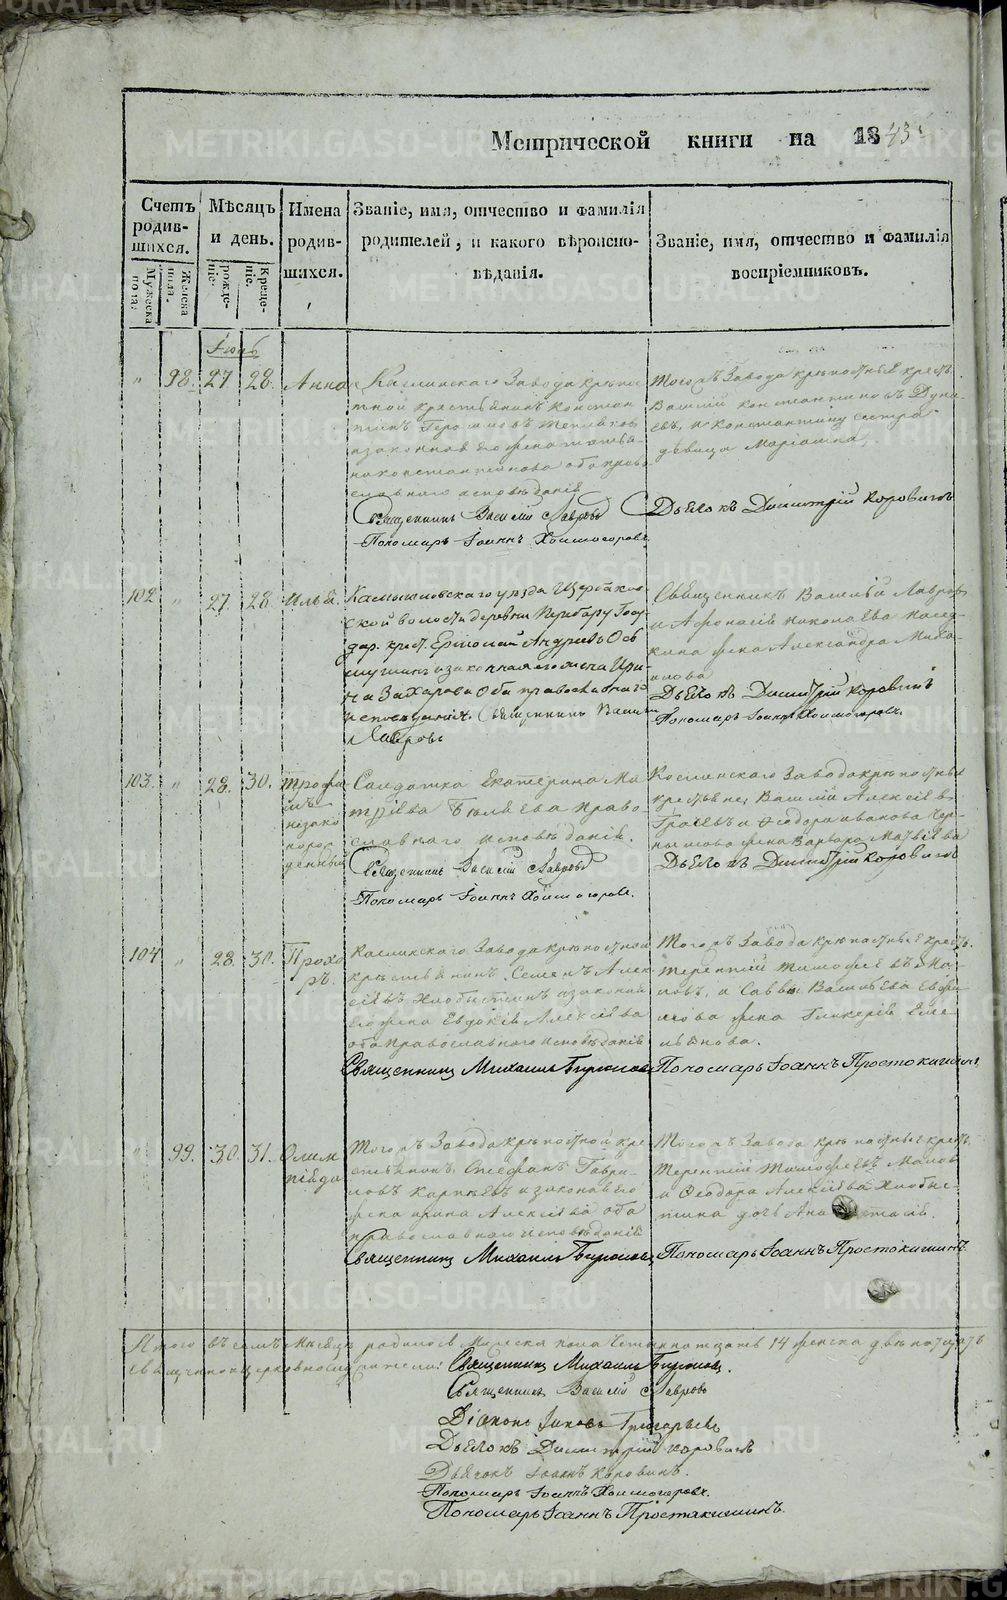 Метрической книги на 1843
Счетъ родившихся.
Мѣсяцъ и день.
Имена родившихся.
Званіе, имя, отчество и фамилія родителей, и какого вѣроисповѣданія.
Званіе, имя, отчество и фамилія воспріемниковъ.
Мужеска пола.
Женска пола.
рожденіе.
крещеніе.
" 98. 27 28. Анна
Каслинскаго Завода крѣпо
стной крестьянинъ Констан
законная его жена
наконстантинова оба право
славнаго исповѣданія
Священникъ Василій Лавровъ
Пономарь Іоаннъ Холмогоровъ
Тогожъ Завода крѣпостные крест.
Василій Константиновъ
евъ, и Константину сестра
девица Маріамна,
Дьячокъ Димитрій Коровинъ
102 " 27. 28 Илья.
Камышловскаго уѣзда Щербаков
ской волости деревни Госу
дар. крест. Ермолай Андреевъ
и законная его жена Ири
на Захарова оба православнаго
исповѣданія. Священникъ Васил
Лавровъ
Священникъ Василій Лавровъ
и Афонасія Николаева
жена Александра Миха
илова
Дьячокъ Димитрій Коровинъ
Пономарь Іоаннъ Холмогоровъ.
103. " 28. 30. Трофи
мъ
незако
норож
денный
Солдатка Екатерина Ма
твіева Бѣляева право
славнаго исповѣданія.
Священникъ Василій Лавровъ
Пономарь Іоаннъ Холмогоровъ.
Каслинскаго Завода крѣпостные
крестьяне, Василій Алексіевъ
и Ѳеодора Иванова
жена Варвара Матвіева
Дьячокъ Димитрій Коровинъ
104 " 28 30. Прохо
ръ.
Каслинскаго Завода крѣпостной
крестьянинъ Семенъ Алек
сіевъ Хлобыстинъ и законная
его жена Евдокія Алексіева
оба православнаго исповѣданія
Священникъ Михаилъ Бирюковъ
Тогожъ Завода крѣпостные крест.
Терентій Тимофеевъ Ма
ловъ, и Саввы Васильева
жена Гликерія Еме
льянова.
Пономарь Іоаннъ Простокишинъ
" 99. 30. 31. Олим
піада
Тогожъ Завода крѣпостной кре
стьянинъ Стефанъ Гаври
ловъ Карпѣевъ и законная его
жена Ирина Алексіева оба
православнаго исповѣданія
Священникъ Михаилъ Бирюковъ
Тогожъ Завода крѣпостные крест.
Терентій Тимофеевъ Маловъ
и Ѳеодора Алексіева Хлобыс
тина дочь Анастасія.
Пономарь Іоаннъ Простокишинъ.
Итого въ семъ мѣсяцѣ родилось Мужеска пола четырнатцать 14 женска
Священноцерковнослужители: Священникъ Михаилъ Бирюковъ.
Священникъ Василій Лавровъ
Діаконъ Іаковъ Григорьевъ
Дьячокъ Димитрій Коровинъ
Дьячокъ Іоаннъ Коровинъ.
Пономарь Іоаннъ Холмогоровъ.
Пономарь Іоаннъ Простокишинъ.
METRIKI.GASO-URAL.RU